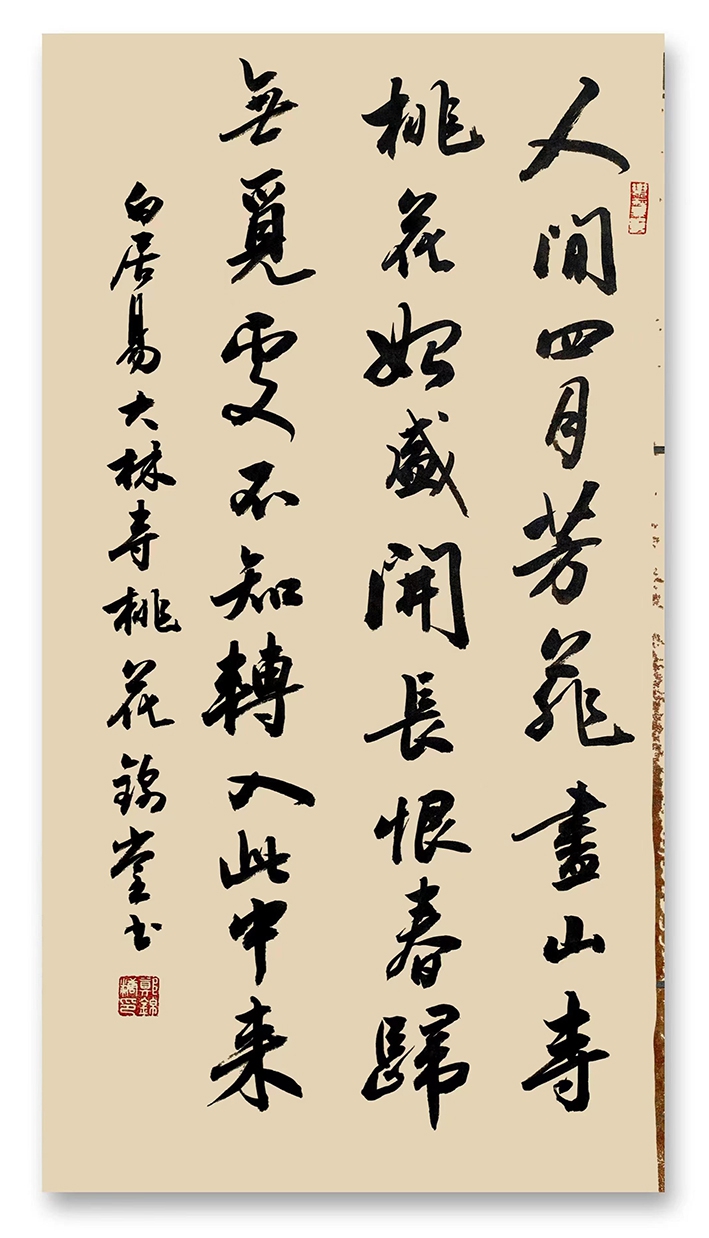 人間四月芳菲盡山寺
桃花始盛開長恨春歸
無覓處不知轉入此中来
白居易大林寺桃花錦堂书